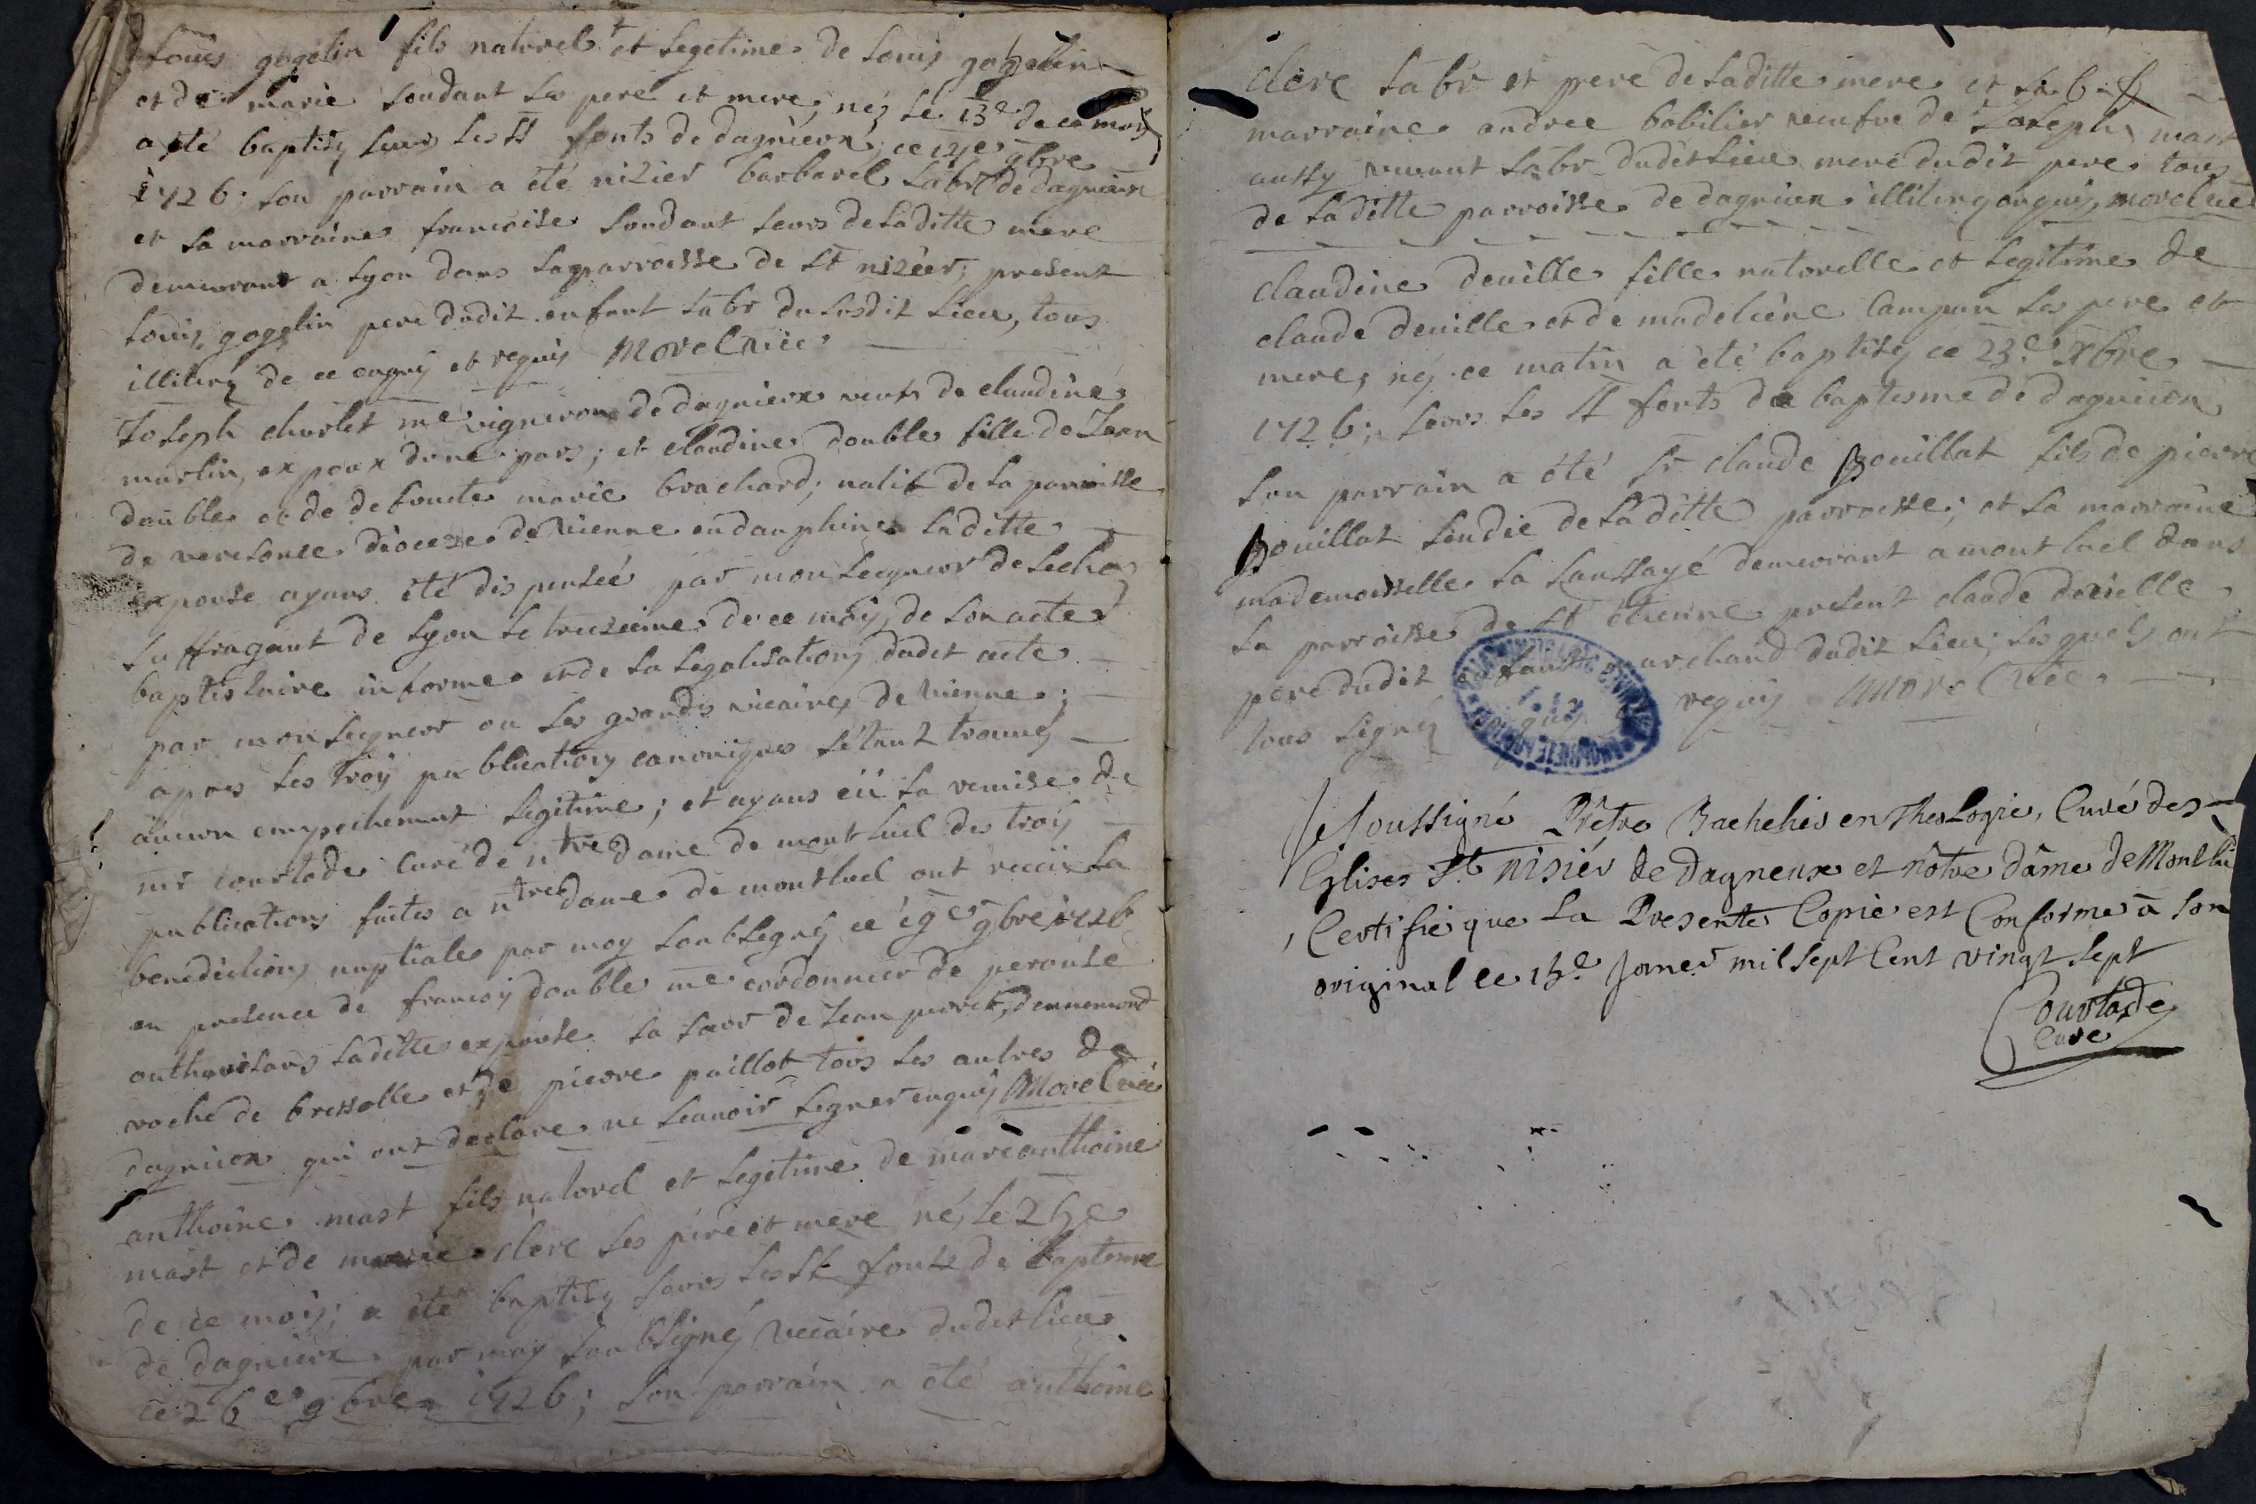 Louis gogelin fils naturel et legetime de Louis gogelin
et de marie soudant ses pere et mere, néz le 13e de ce mois
a été baptisez surs les st fonts de dagnieux, ce 14e 9bre
1726; son parrain a été nizier barbarel labr de dagnieux
et la marraine francoise soudant seurs de laditte mere
demeurant a Lyon dans la parroisse de st nizier, present
Louis gogelin pere dudit enfant labr du susdit lieu, tous
illiterez de ce enquis et requis Morel vice
Joseph charlet me vigneron de dagnieux veufs de claudine
martin, expoux dune pars; et claudine double fille de Jean
double et de defuncte marie brachard, natif de la parroisse
de diocese de vienne en dauphine laditte
expouse ayans été dispensée par monseigneur de
suffragant de Lyon le treizieme de ce mois, de son acte
baptistaire informe et de la legalisation dudit acte
par monseigneur ou ses grands vicaires de vienne;
apres les trois publications canoniques s'étant trouvez
aucun empechement legitime; et ayans eü la remise de
mr courtade curé de ntre dame de montluel des trois
publications faites a ntre dame de montluel ont receüe la
benediction nuptiale par moy soubsigné ce 19e 9bre 1726
en presence de francois double me cordonnier de perouse
authorisans laditte expouse sa seur de Jean perret, dennemond
roche de bressolle et de pierre paillot tous les autres de
dagnieux qui ont declare ne scavoir signer enquis Morel vice
anthoine mast fils naturel et legetime de marc anthoine
mast et de marie clere ses pere et mere né, le 25e
de ce mois; a été baptisez surs les st fonts de baptesme
de dagnieux par moy soubsigné vicaire dudit lieu
ce 26e 9bre 1726; son parrain a été anthoine
clere labr et pere de laditte mere et sa
marraine andree babilier veufve de Joseph mast
aussy vivant labr dudit lieu mere dudit pere tous
de laditte parroisse de dagnieux illiterez enquis, morel vice
claudine deville fille naturelle et legitime de
claude deville et de madeleine campan ses pere et
mere, néz ce matin a été baptisez ce 23e xbre
1726; surs les st fonts de baptesme de dagnieux
son parrain a été sr claude Bouillat fils de pierre
Bouillat sendic de laditte parroisse; et la marraine
mademoiselle la saussaye demeurant a montluel dans
la parroisse de st etienne present claude deville
pere dudit enfant marchand dudit lieu; lesquels ont
tous signez requis Morel vice
Je soussigné Prêtre Bachelier en Theologie, Curé des
Eglises St nisiér de Dagneux et nôtre dâme de Montlu
Certifie que la Presente Copie est Conforme a son
original ce 15e Janer mil sept Cent vingt sept
Courtade
Curé